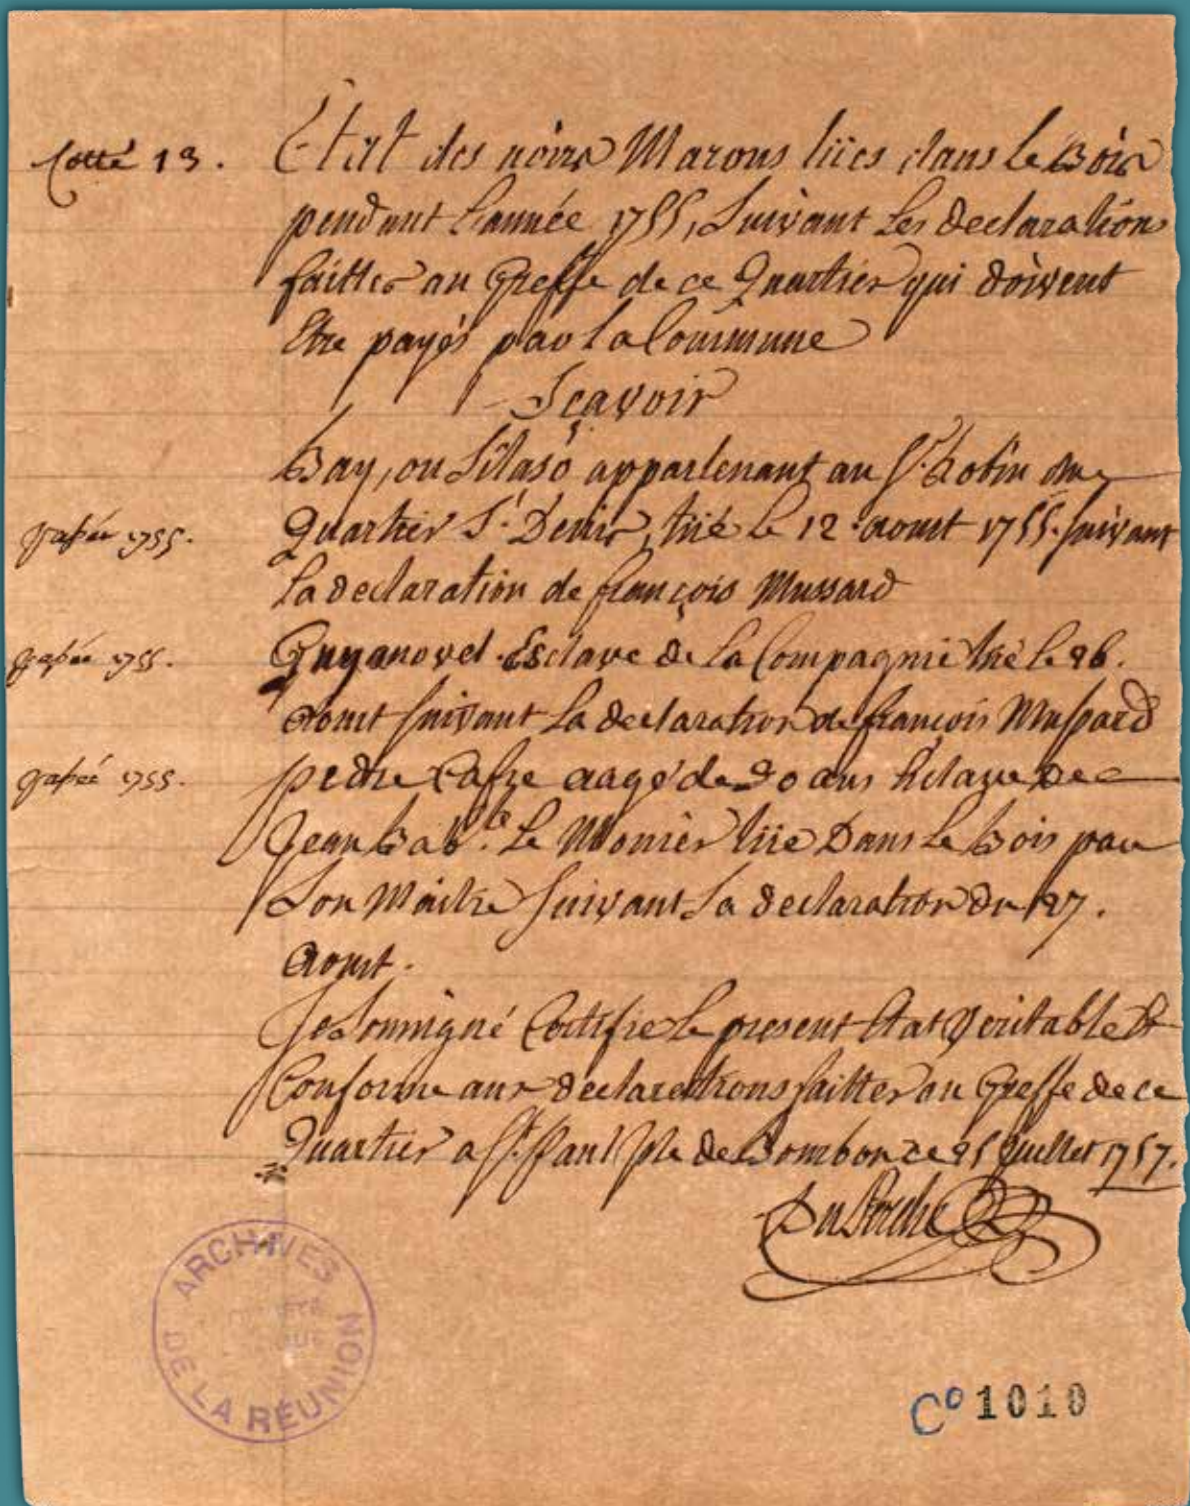 Cotté 13.
Etat des noirs Marons tüés dans le Bois
pendant l'année 1755, Suivant Les declaration
faittes au Greffe de ce Quartier qui doivent
Etre payés par la Commune
Sçavoir
Bay, ou appartenant au Sr. Robin du
payée 1755.
Quartier St. Denis, tüé le 12 aoust 1755. suivant
La declaration de françois Mussard
payée 1755.
Esclave de la Compagnie tüé le 26.
aoust suivant La declaration de françois Mussard
payée 1755.
pedre Cafre aagé de 30 ans Esclave de
Jean Bab.te Le Monier tüé Dans Le Bois par
Son Maitre suivant Sa declaration du 27.
Aoust.
Je Soussigné Certifie Le present Etat Veritable Et
Conforme aux declarations faittes au Greffe de ce
Quartier a St. Paul Isle de Bourbon ce 25 Juillet 1757.
ARCHIVES
DE LA RÉUNION
Co 1010